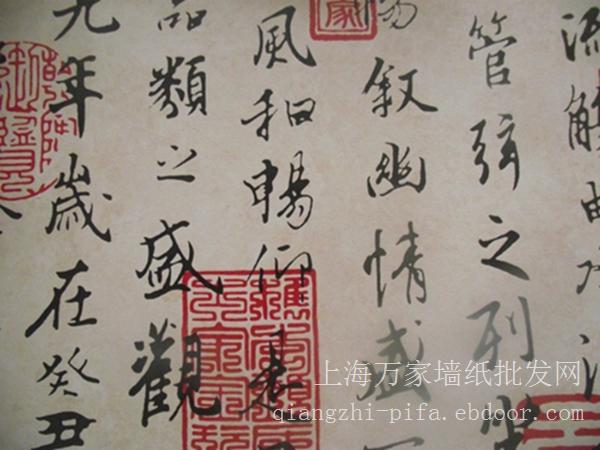 流觴曲水
管弦之列坐
暢叙幽情盛一
風和暢仰惠
品類之盛觀
九年歲在癸丑
上海万家墙纸批发网
qiangzhi-pifa.ebdoor.com